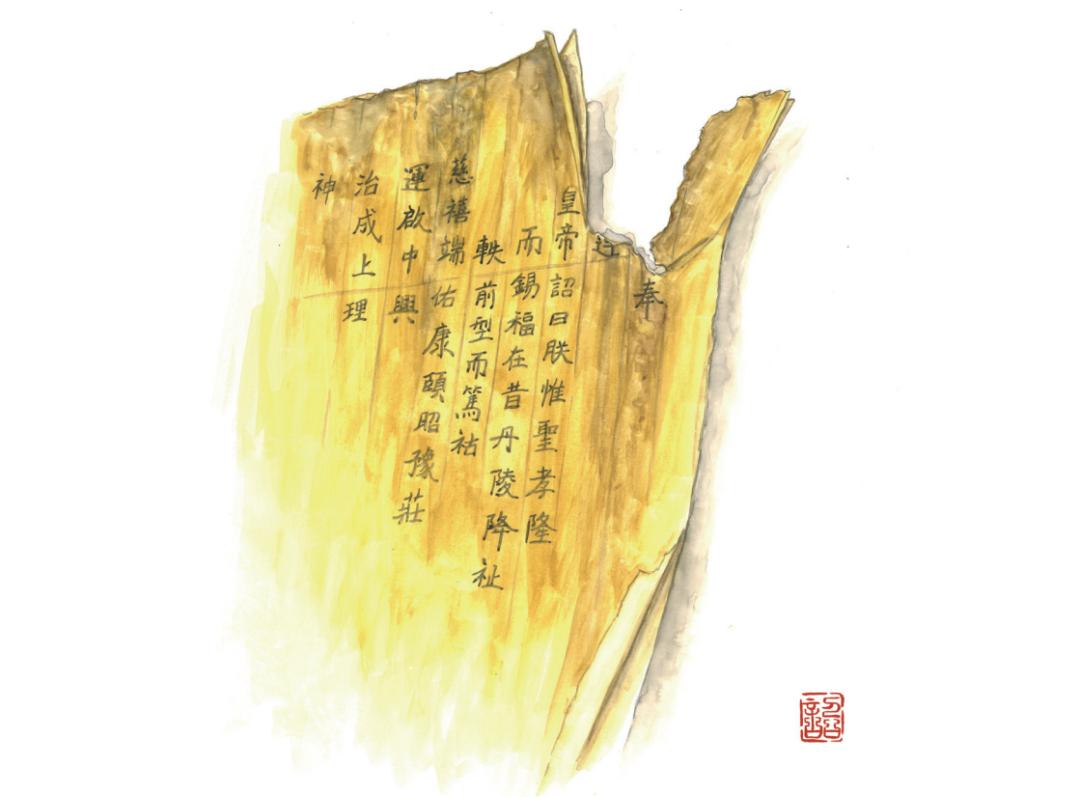 奉
皇帝詔曰朕惟聖孝隆
而錫福在昔丹陵降祉
軼前型而篤祜
慈禧端佑康頤昭豫莊
運啟中興
治成上理
神
詔